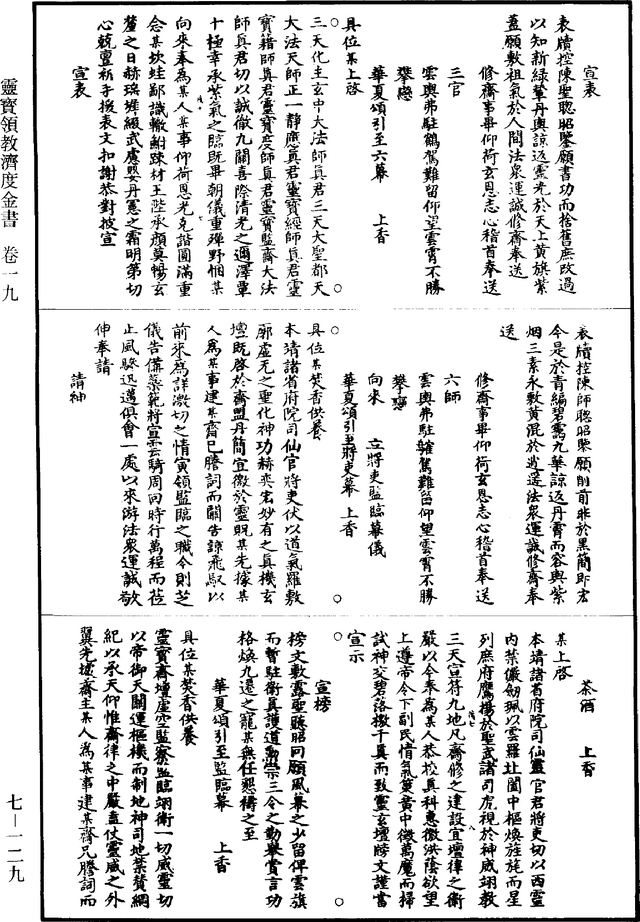 靈寶領教濟度金書 卷一九
七—一二九
宣表
表牘控陳聖聰昭鑒願書功而捨舊庶改過
以知新綠輦丹輿諒返靈光於天上黃旗紫
蓋願敷祖氣於人間法衆運誠修齋奉送
修齋事畢仰荷玄恩志心稽首奉送
三官
雲輿弗駐鶴駕難留仰望雲霄不勝
攀戀
華夏頌引至六幕 上香
具位某上啓
三天化主玄中大法師真君三天大聖都天
大法天師正一靜應真君靈寶經師真君靈
寶籍師真君靈寶度師真君靈寶監齋大法
師真君切以誠徹九關喜際清光之邇澤覃
十極幸承紫氣之臨既畢朝儀重殫野悃某
向來奉為某人某事仰荷恩光克諧圓滿重
念某坎蛙鄙識轍鮒踈材玉陛承顏莫暢玄
釐之日赫瑤墀緩武慮嬰丹憲之霜明第切
心兢亶祈手援表文扣謝恭對披宣
宣表
表牘控陳師聰昭鑒願削前非於黑簡即宏
今是於青編碧靄九華諒返丹霄而容與紫
烟三素永敷黃混於逍遙法衆運誠修齋奉
送
修齋事畢仰荷玄恩志心稽首奉送
六師
雲輿弗駐鶴駕難留仰望雲霄不勝
攀戀
向來 立將吏監臨幕儀
華夏頌引至將吏幕 上香
具位某焚香供養
本靖諸省府院司仙官將吏伏以道氣羅敷
廓虛无之聖化神功赫奕宏妙有之真機玄
壇既啓於齋盟丹簡宜徹於靈貺某先據某
人為某事建某齋已謄詞而關告諒飛馭以
前來為詳激切之情寅領監臨之職今則芝
儀告備蘂範將宣雲騎周回時行萬程而莅
止風驂迅邁俱會一處以來游法衆運誠敬
伸奉請
請紳
茶酒 上香
某上啓
本靖諸省府院司仙靈官君將吏切以西靈
內禁儀劒珮以雲羅北闕中樞煥旌旄而星
列庶府鷹揚於聖武諸司虎視於神威翊教
三天宣符九地凡齋修之建設宜壇律之衛
嚴以今奉為某人恭校真科惠徹洪蔭欲望
上遵帝令下副民情氣篁黃中微萬魔而掃
試神交碧落檄千真而致靈玄壇牓文謹當
宣示
宣榜
榜文敷露聖聽昭回願風幕之少留俾雲旗
而暫駐衛真護道勤宗三令之勳舉賞言功
格煥九遷之寵某與任懇禱之至
華夏頌引至監臨幕 上香
具位某焚香供養
靈寶齋壇虛空監察監臨翊衛一切威靈切
以帝御天關運樞機而制地神司地禁贊綱
紀以承天仰惟齋律之中嚴盍仗靈威之外
翼先據齋主某人為某事建某齋凡謄詞而